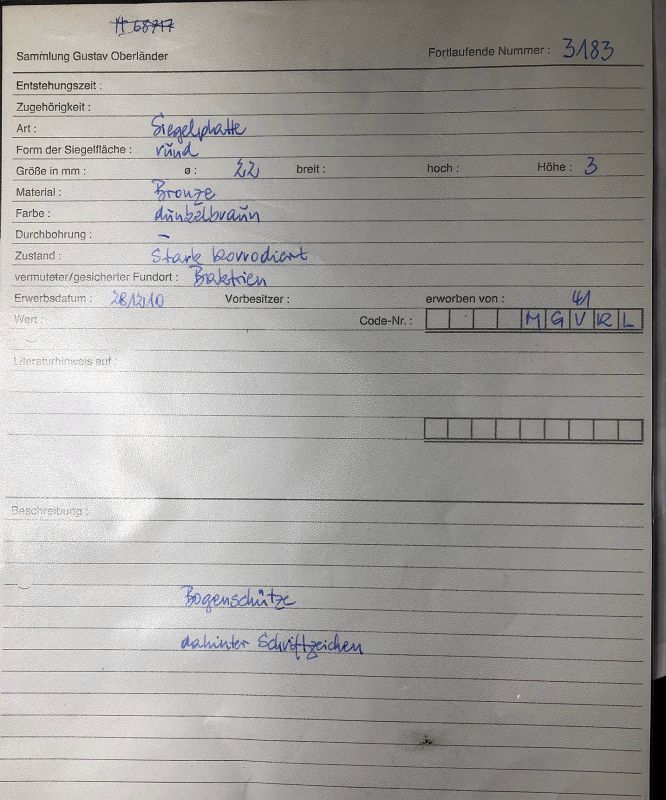 H 68717
Sammlung Gustav Oberländer Fortlaufende Nummer : 3183
Entstehungszeit :
Zugehörigkeit :
Art : Siegelplatte
Form der Siegelfläche : rund
Größe in mm : ø : 22 breit : hoch : Höhe : 3
Material : Bronze
Farbe : dunkelbraun
Durchbohrung : –
Zustand : Stark korrodiert
vermuteter/gesicherter Fundort : Baktrien
Erwerbsdatum : Vorbesitzer : erworben von : 41
Wert : Code-Nr. : M G V R L
Literaturhinweis auf :
Beschreibung :
Bogenschütze
dahinter Schriftzeichen